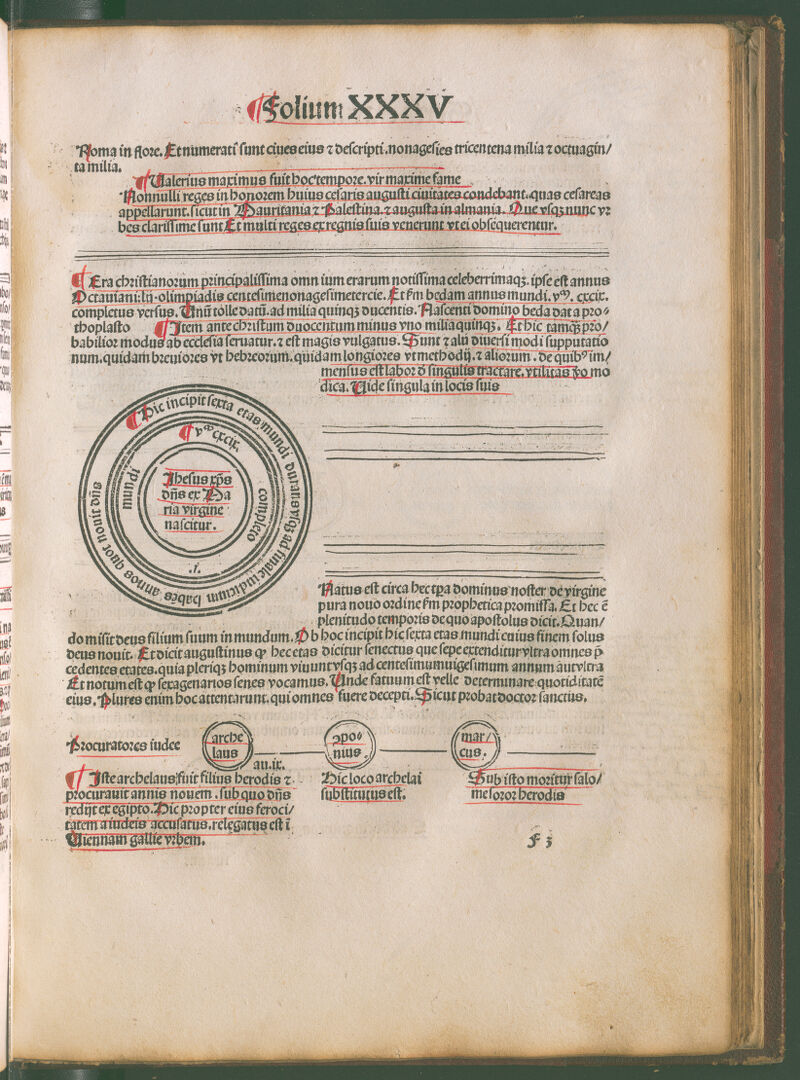 ¶Folium XXXV
Roma in flore. Et numerati sunt ciues eius ⁊ descripti. nonagesies tricentena milia ⁊ octuagin/
ta milia.
¶Ualerius maximus fuit hoc tempore. vir maxime fame
Nonnulli reges in honorem huius cesaris augusti ciuitates condebant. quas cesareas
appellarunt. sicut in Mauritania ⁊ Palestina. ⁊ augusta in almania. Que vsqꝫ nunc vr
bes clarissime sunt Et multi reges ex regnis suis venerunt vt ei obsequerentur.
¶ Era christianorum principalissima omn ium erarum notissima celeberrimaqꝫ. ipse est annus
Octauiani: lij-olimpiadis centesimenonagesimetercie. Et ẜm bedam annus mundi. vᵐ. cxcix.
completus versus. Unū tolle datū. ad milia quinqꝫ ducentis. Nascenti domino beda dat a pro-
thoplasto ¶Item ante christum duocentum minus vno milia quinqꝫ. Et hic tamqꝫ pro/
babilior modus ab ecclesia seruatur. ⁊ est magis vulgatus. Sunt ⁊ alij diuersi modi supputatio
num. quidam breuiores vt hebreorum. quidam longiores vt methodij. ⁊ aliorum. de quibꝰ im/
mensus est labor d̄ singulis tractare. vtilitas v̄o mo
dica. Uide singula in locis suis
¶Hic incipit sexta etas mundi durans vsqꝫ ad finale iudicium habēs annos quot nouit dn̄s
¶ vᵐ cxcix.
completo
.f.
mundi
Ihesus xp̄s
dn̄s ex Ma
ria virgine
nascitur.
Natus est circa hec tp̄a dominus noster de virgine
pura nouo ordine ẜm prophetica promissa. Et hec ē
plenitudo temporis de quo apostolus dicit. Quan/
do misit deus filium suum in mundum. Ob hoc incipit hic sexta etas mundi cuius finem solus
deus nouit. Et dicit augustinus ꝙ hec etas dicitur senectus que sepe extenditur vltra omnes p̄
cedentes etates. quia pleriqꝫ hominum viuunt vsqꝫ ad centesimumuigesimum annum aut vltra
Et notum est ꝙ sexagenarios senes vocamus. Unde fatuum est velle determinare quotiditatē
eius. Plures enim hoc attentarunt. qui omnes fuere decepti. Sicut probat doctor sanctus.
Procuratores iudee
arche
laus
an. ix.
ꝯpo-
nius.
mar/
cus.
¶ Iste archelaus fuit filius herodis ⁊
procurauit annis nouem. sub quo dn̄s
redijt ex egipto. Hic propter eius feroci/
tatem a iudeis accusatus. relegatus est ī
Uiennam gallie vrbem.
Hic loco archelai
substitutus est.
Sub isto moritur salo/
me soror herodis
F 3